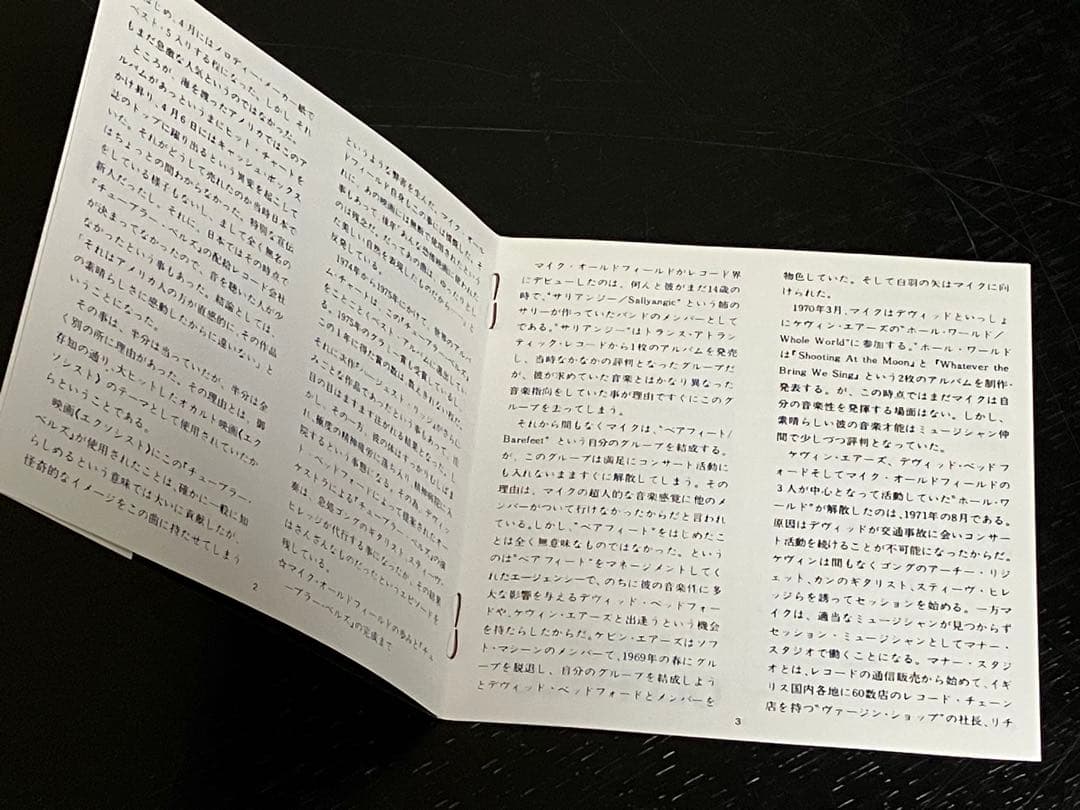 はじめ、4月にはメロディー・メーカー紙で
ベスト・5入りする程になった。しかし それ
もまだ急激な人気というのではなかった。
ところが、海を渡ったアメリカではこのア
ルバムがあっというまにヒット・チャートを
かけ昇り、4月6日にはキャッシュ・ボックス
誌のトップに躍り出るという異変を起こして
いた。それがどうして売れたのか当時日本で
はちょっとの間わからなかった。特別な宣伝
をしている様子もないし、まして全く無名の
新人だったし、それに、日本ではその時点で
『チューブラー・ベルズ』の配給レコード会社
が決まってなかったので、音を聴いた人が少
なかったという事もあった。結論としては、
「それはアメリカ人の方が直感的に、その作品
の素晴らしさに感動したからに違いない」と
いうことになった。
この事は、半分は当っていたが、半分は全
く別の所に理由があった。その理由とは、御
存知の通り、大ヒットしたオカルト映画〈エク
ソシスト〉のテーマとして使用されていたか
らということである。
映画〈エクソシスト〉にこの『チューブラー・
ベルズ』が使用されたことは、確かに一般に知
らしめるという意味では大いに貢献したが、
怪奇的なイメージをこの曲に持たせてしまう
2
というような弊害を生んだ。マイク・オール
ドフィールド自身もこの事には憤慨した。そ
れに、あの映画には無断で使用されたという
事もあって、後年「あんな恐怖映画に使われた
のは残念だ。だってあの曲は、ゆったりとし
た美しい自然を表現したものだから……」と
反発している。
1974年から1975年にかけて、世界のアルバ
ム・チャートは、この『チューブラー・ベルズ』
をことごとくベスト・アルバムに選出してい
る。1975年のグラミー賞も受賞しているし、
この1年に得た賞の数は、数えきれない程だ。
それに次作『ハージェスト・リッジ』がさらに
みごとな作品であったという事もあって、注
目の目はますます注がれる結果となった。し
かし、その一方、彼の体はすっかりむしばま
れ、極度の精神疲労に落ち入り、精神病院に入
院するという事態になる。その為、デヴィッ
ド・ベッドフォードによって提案されたオー
ケストラによる『チューブラー・ベルズ』の演
奏は、急処ゴングのギタリスト、スティーヴ・
ヒレッジが代行する事になったが、その結果
はさんざんなものだったというエピソードを
残している。
☆マイク・オールドフィールドの歩みと『チュ
ーブラー・ベルズ』の完成まで
マイク・オールドフィールドがレコード界
にデビューしたのは、何んと彼がまだ14歳の
時で、"サリアンジー/Sallyangie"という姉の
サリーが作っていたバンドのメンバーとして
である。"サリアンジー"はトランス・アトラン
ティック・レコードから1枚のアルバムを発売
し、当時なかなかの評判となったグループだ
が、彼が求めていた音楽とはかなり異なった
音楽指向をしていた事が理由ですぐにこのグ
ループを去ってしまう。
それから間もなくマイクは、"ベアフィート/
Barefeet"という自分のグループを結成する。
が、このグループは満足にコンサート活動に
も入れないまますぐに解散してしまう。その
理由は、マイクの超人的な音楽感覚に他のメ
ンバーがついて行けなかったからだと言われ
ている。しかし、"ベアフィート"をはじめたこ
とは全く無意味なものではなかった。という
のは"ベアフィート"をマネージメントしてく
れたエージェンシーで、のちに彼の音楽性に多
大な影響を与えるデヴィッド・ベッドフォー
ドや、ケヴィン・エアーズと出逢うという機会
を持たらしたからだ。ケビン・エアーズはソフ
ト・マシーンのメンバーで、1969年の春にグル
ープを脱退し、自分のグループを結成しよう
とデヴィッド・ベッドフォードとメンバーを
物色していた。そして白羽の矢はマイクに向
けられた。
1970年3月、マイクはデヴィッドといっしょ
にケヴィン・エアーズの"ホール・ワールド/
Whole World"に参加する。"ホール・ワールド
は『Shooting At the Moon』と『Whatever the
Bring We Sing』という2枚のアルバムを制作・
発表する。が、この時点ではまだマイクは自
分の音楽性を発揮する場面はない。しかし、
素晴らしい彼の音楽才能はミュージシャン仲
間で少しづつ評判となっていた。
ケヴィン・エアーズ、デヴィッド・ベッドフ
ォードそしてマイク・オールドフィールドの
3人が中心となって活動していた"ホール・ワ
ールド"が解散したのは、1971年の8月である。
原因はデヴィッドが交通事故に会いコンサー
ト活動を続けることが不可能になったからだ。
ケヴィンは間もなくゴングのアーチー・リジ
ェット、カンのギタリスト、スティーヴ・ヒレ
ッジらを誘ってセッションを始める。一方マ
イクは、適当なミュージシャンが見つからず
セッション・ミュージシャンとしてマナー・
スタジオで働くことになる。マナー・スタジ
オとは、レコードの通信販売から始めて、イギ
リス国内各地に60数店のレコード・チェーン
店を持つ"ヴァージン・ショップ"の社長、リチ
3